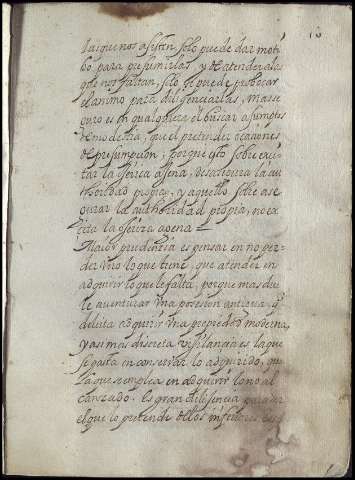 10
las que nos asisten, solo puede dar moti
bo para presumirlas, y de atender a las
que nos faltan, solo se puede probocar
el animo para diligenciarlas, mas se
guro es en qualquiera el buscar asumptos
de modestia, que el pretender ocasiones
de presumpcion; porque esto sobre exci
tar la ajena, desautoriza la au
thoridad propia, y aquello sobre ase
gurar la authoridad propia, no ex
cita la agena
Maior prudencia es pensar en no per
der uno lo que tiene, que atender en
adquirir lo que le falta, porque mas due
le aventurar una posesion antigua, q
deleita adquirir una propiedad moderna,
y asi mas discreta vigilancia es la que
se gasta en conservar lo adquirido, que
la que se emplea en adquirir lo no al
canzado. Es gran diligencia para
el que lo pretende